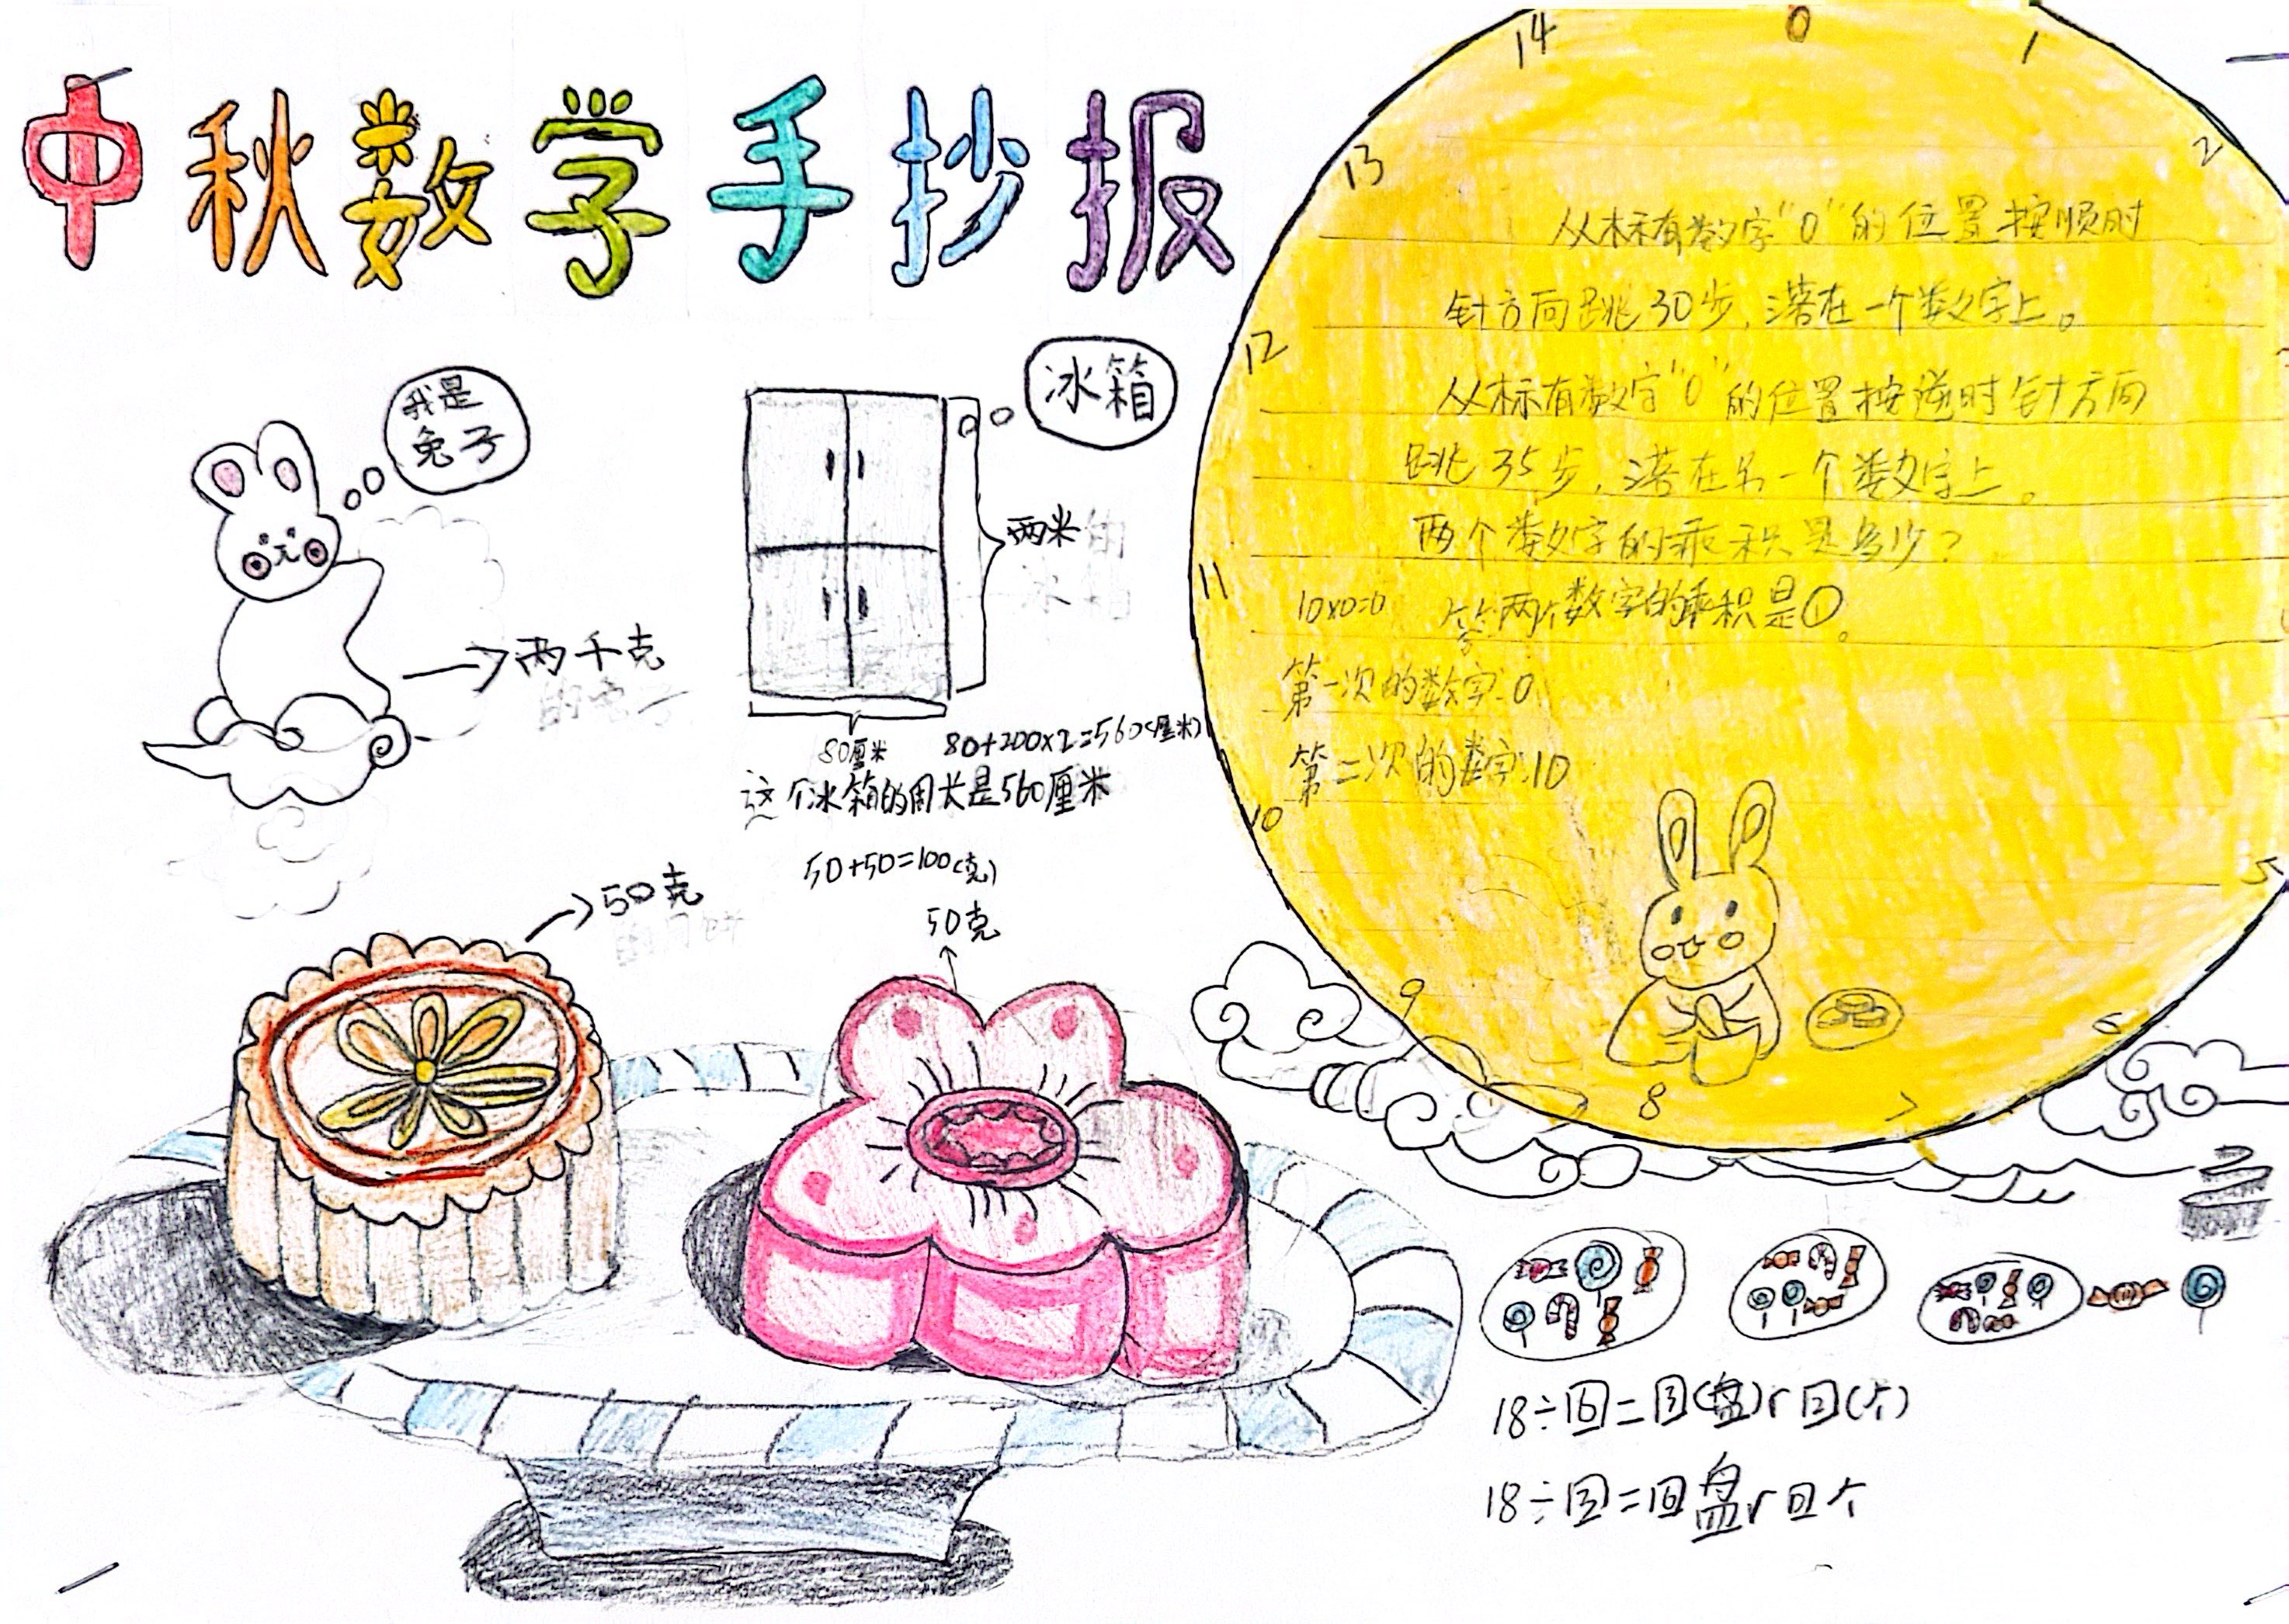 中秋数学手抄报
我是
兔子
两千克
冰箱
两米
80厘米
80+200×2=560(厘米)
这个冰箱的周长是560厘米
50+50=100(克)
50克
50克
14
0
1
13
2
12
11
10
5
9
6
8
7
从标有数字“0”的位置按顺时
针方向跳30步,落在一个数字上。
从标有数字“0”的位置按逆时针方向
跳35步,落在另一个数字上。
两个数字的乘积是多少?
10×0=0 答:两个数字的乘积是0。
第一次的数字:0
第二次的数字:10
18÷
盘
个
18÷
盘
个